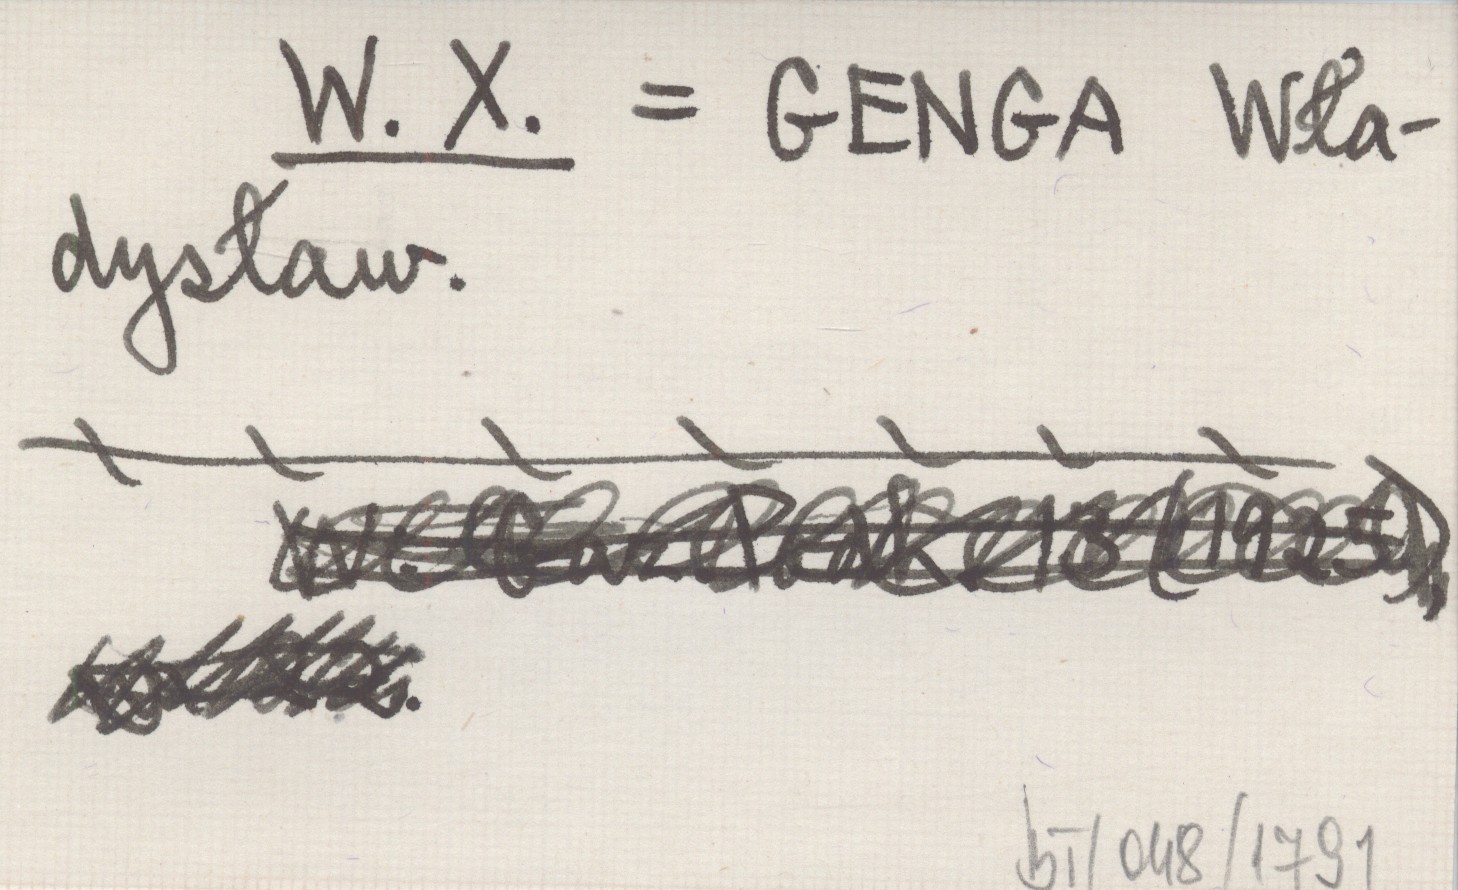 W. X. = GENGA Wła-
dysław.
13 (1925),
bI/048/1791